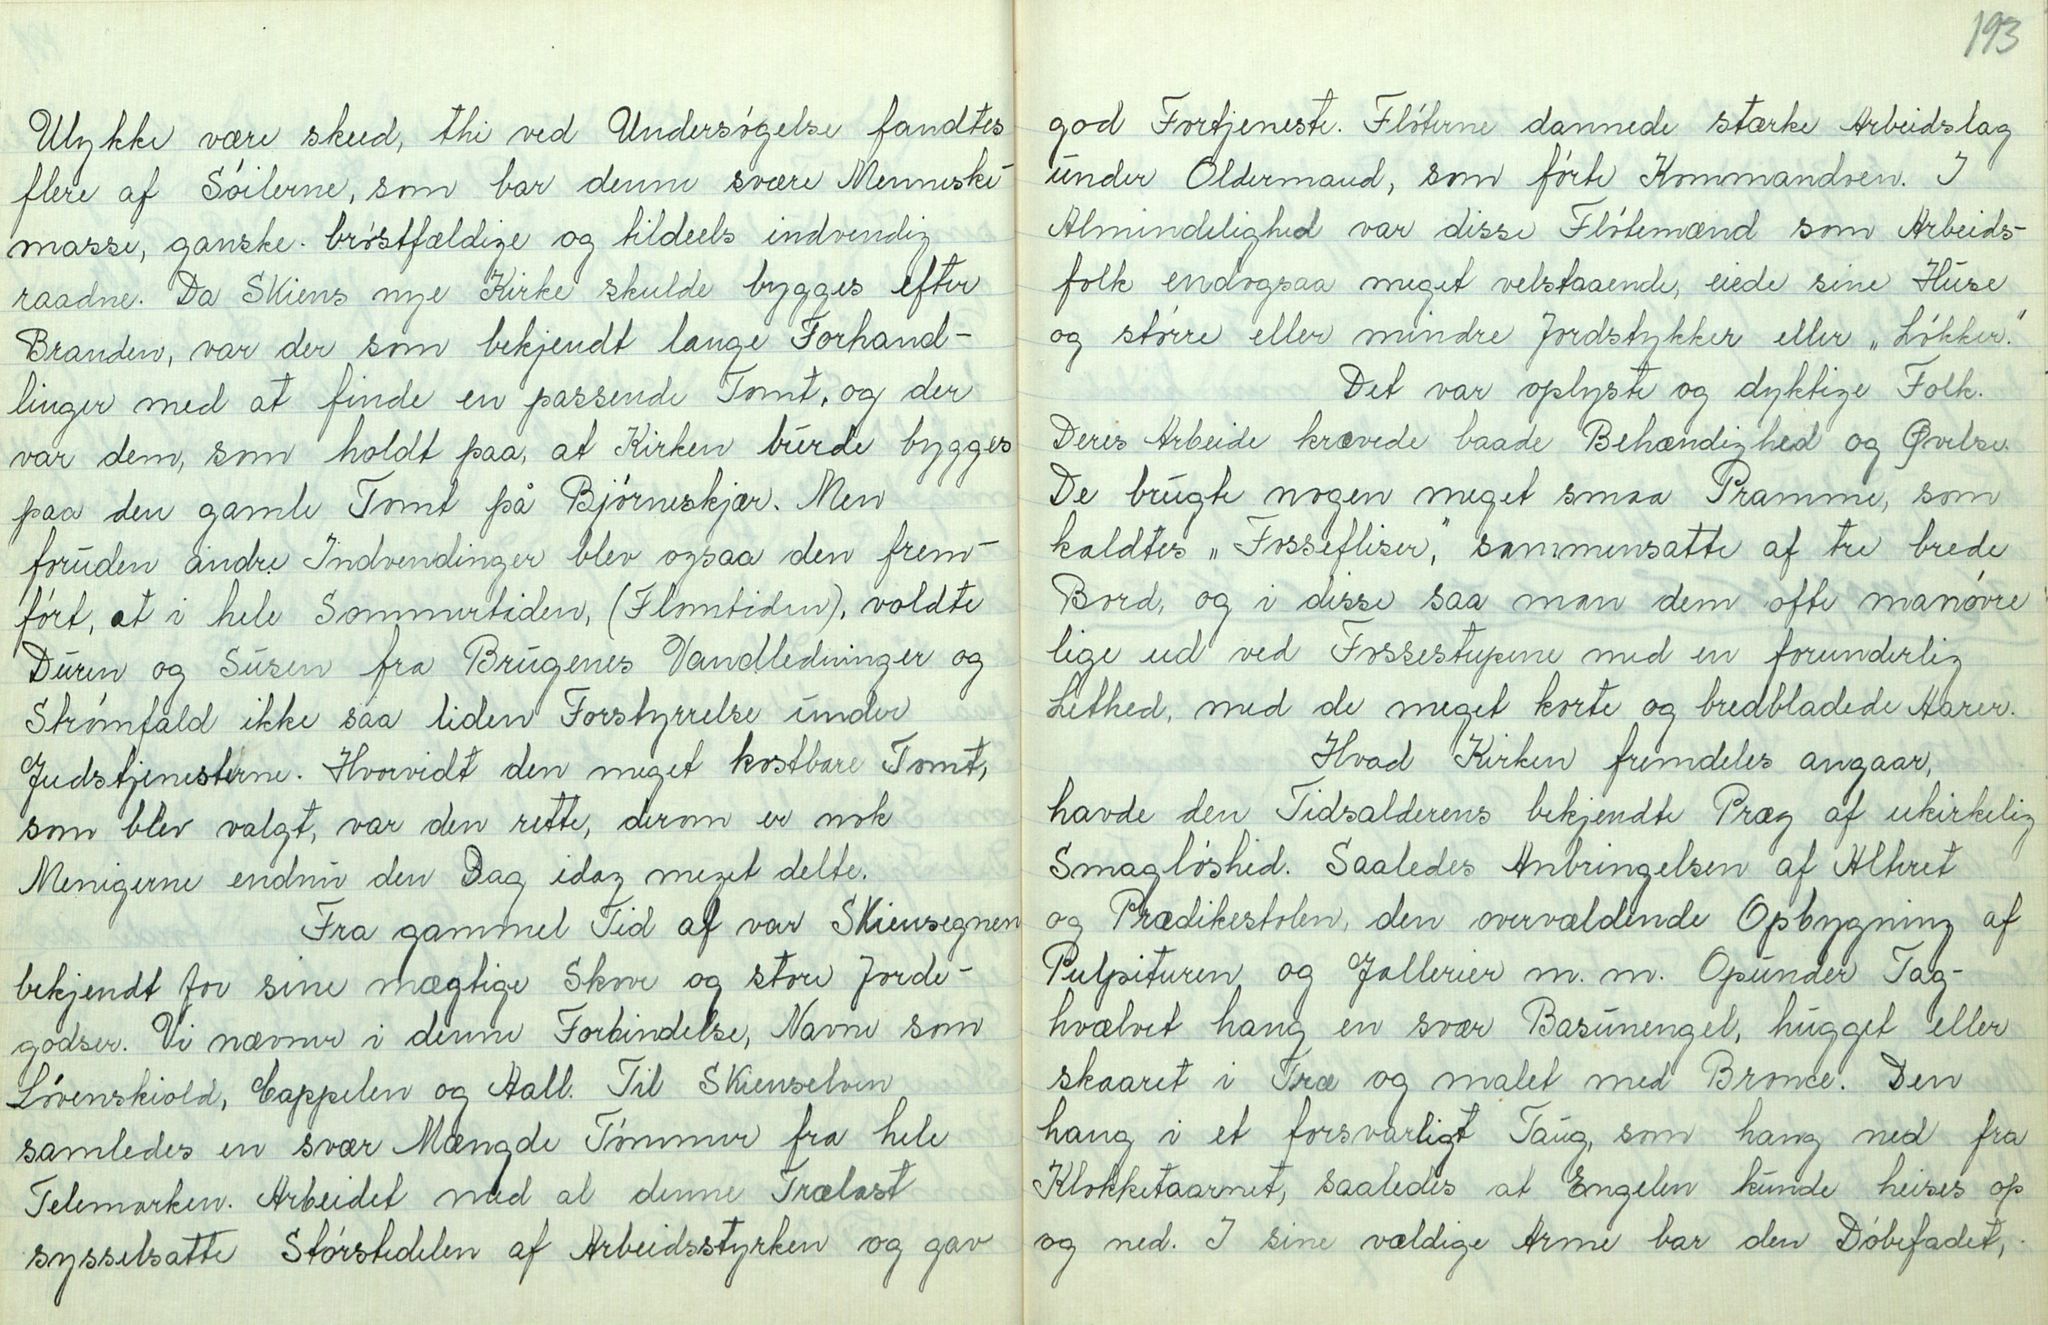 Ulykke være skeed, thi ved Undersøgelse fandtes
flere af Søilerne, som bar denne svære Menneske-
masse, ganske brøstfældige og tildeels indvendig
raadne. Da Skiens nye Kirke skulde bygges efter
Branden, var der som bekjendt lange Forhand-
linger med at finde en passende Tomt, og der
var dem, som holdt paa, at Kirken burde bygges
paa den gamle Tomt på Bjørneskjær. Men
foruden andre Indvendinger blev ogsaa den frem-
ført, at i hele Sommertiden, (Flomtiden), voldte
Duren og Susen fra Brugenes Vandledninger og
Strømfald ikke saa liden Forstyrrelse under
Gudstjenesterne. Hvorvidt den meget kostbare Tomt,
som blev valgt, var den rette, derom er nok
Menigerne endnu den Dag idag meget delte.
Fra gammel Tid af var Skiensegnen
bekjendt for sine mægtige Skove og store Jorde-
godser. Vi nævner i denne Forbindelse, Navne som
Løvenskiold, Cappelen og Aall. Til Skienselven
samledes en svær Mængde Tømmer fra hele
Telemarken. Arbeidet med al denne Trælast
sysselsatte Størstedelen af Arbeidsstyrken og gav
193
god Fortjeneste. Fløterne dannede stærke Arbeidslag
under Oldermand, som førte Kommandoen. I
Almindelighed var disse Fløtemænd som Arbeids-
folk endogsaa meget velstaaende, eiede sine Huse
og større eller mindre Jordstykker eller „Løkker."
Det var oplyste og dyktige Folk.
Deres Arbeide krævede baade Behændighed og Øvelse.
De brugte nogen meget smaa Pramme, som
kaldtes „Fossefliser," sammensatte af tre brede
Bord, og i disse saa man dem ofte manøvre
lige ud ved Fossestupene med en forunderlig
Lethed, med de meget korte og bredbladede Aarer.
Hvad Kirken fremdeles angaar,
havde den Tidsalderens bekjendte Præg af ukirkelig
Smagløshed. Saaledes Anbringelsen af Alteret
og Prædikestolen, den overvældende Opbygning af
Pulpituren og Gallerier m. m. Opunder Tag-
hvælvet hang en svær Basunengel, hugget eller
skaaret i Træ og malet med Bronce. Den
hang i et forsvarligt Taug, som hang ned fra
Klokketaarnet, saaledes at Engelen kunde heises op
og ned. I sine vældige Arme bar den Døbefadet,